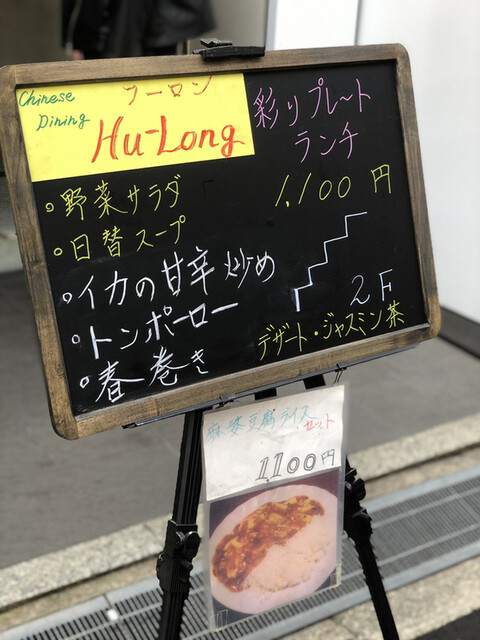 Chinese
Dining
フーロン
Hu-Long
彩りプレート
ランチ
1,100円
・野菜サラダ
・日替スープ
・イカの甘辛炒め
・トンポーロー
・春巻き
2F
デザート・ジャスミン茶
麻婆豆腐ライス
セット
1,100円